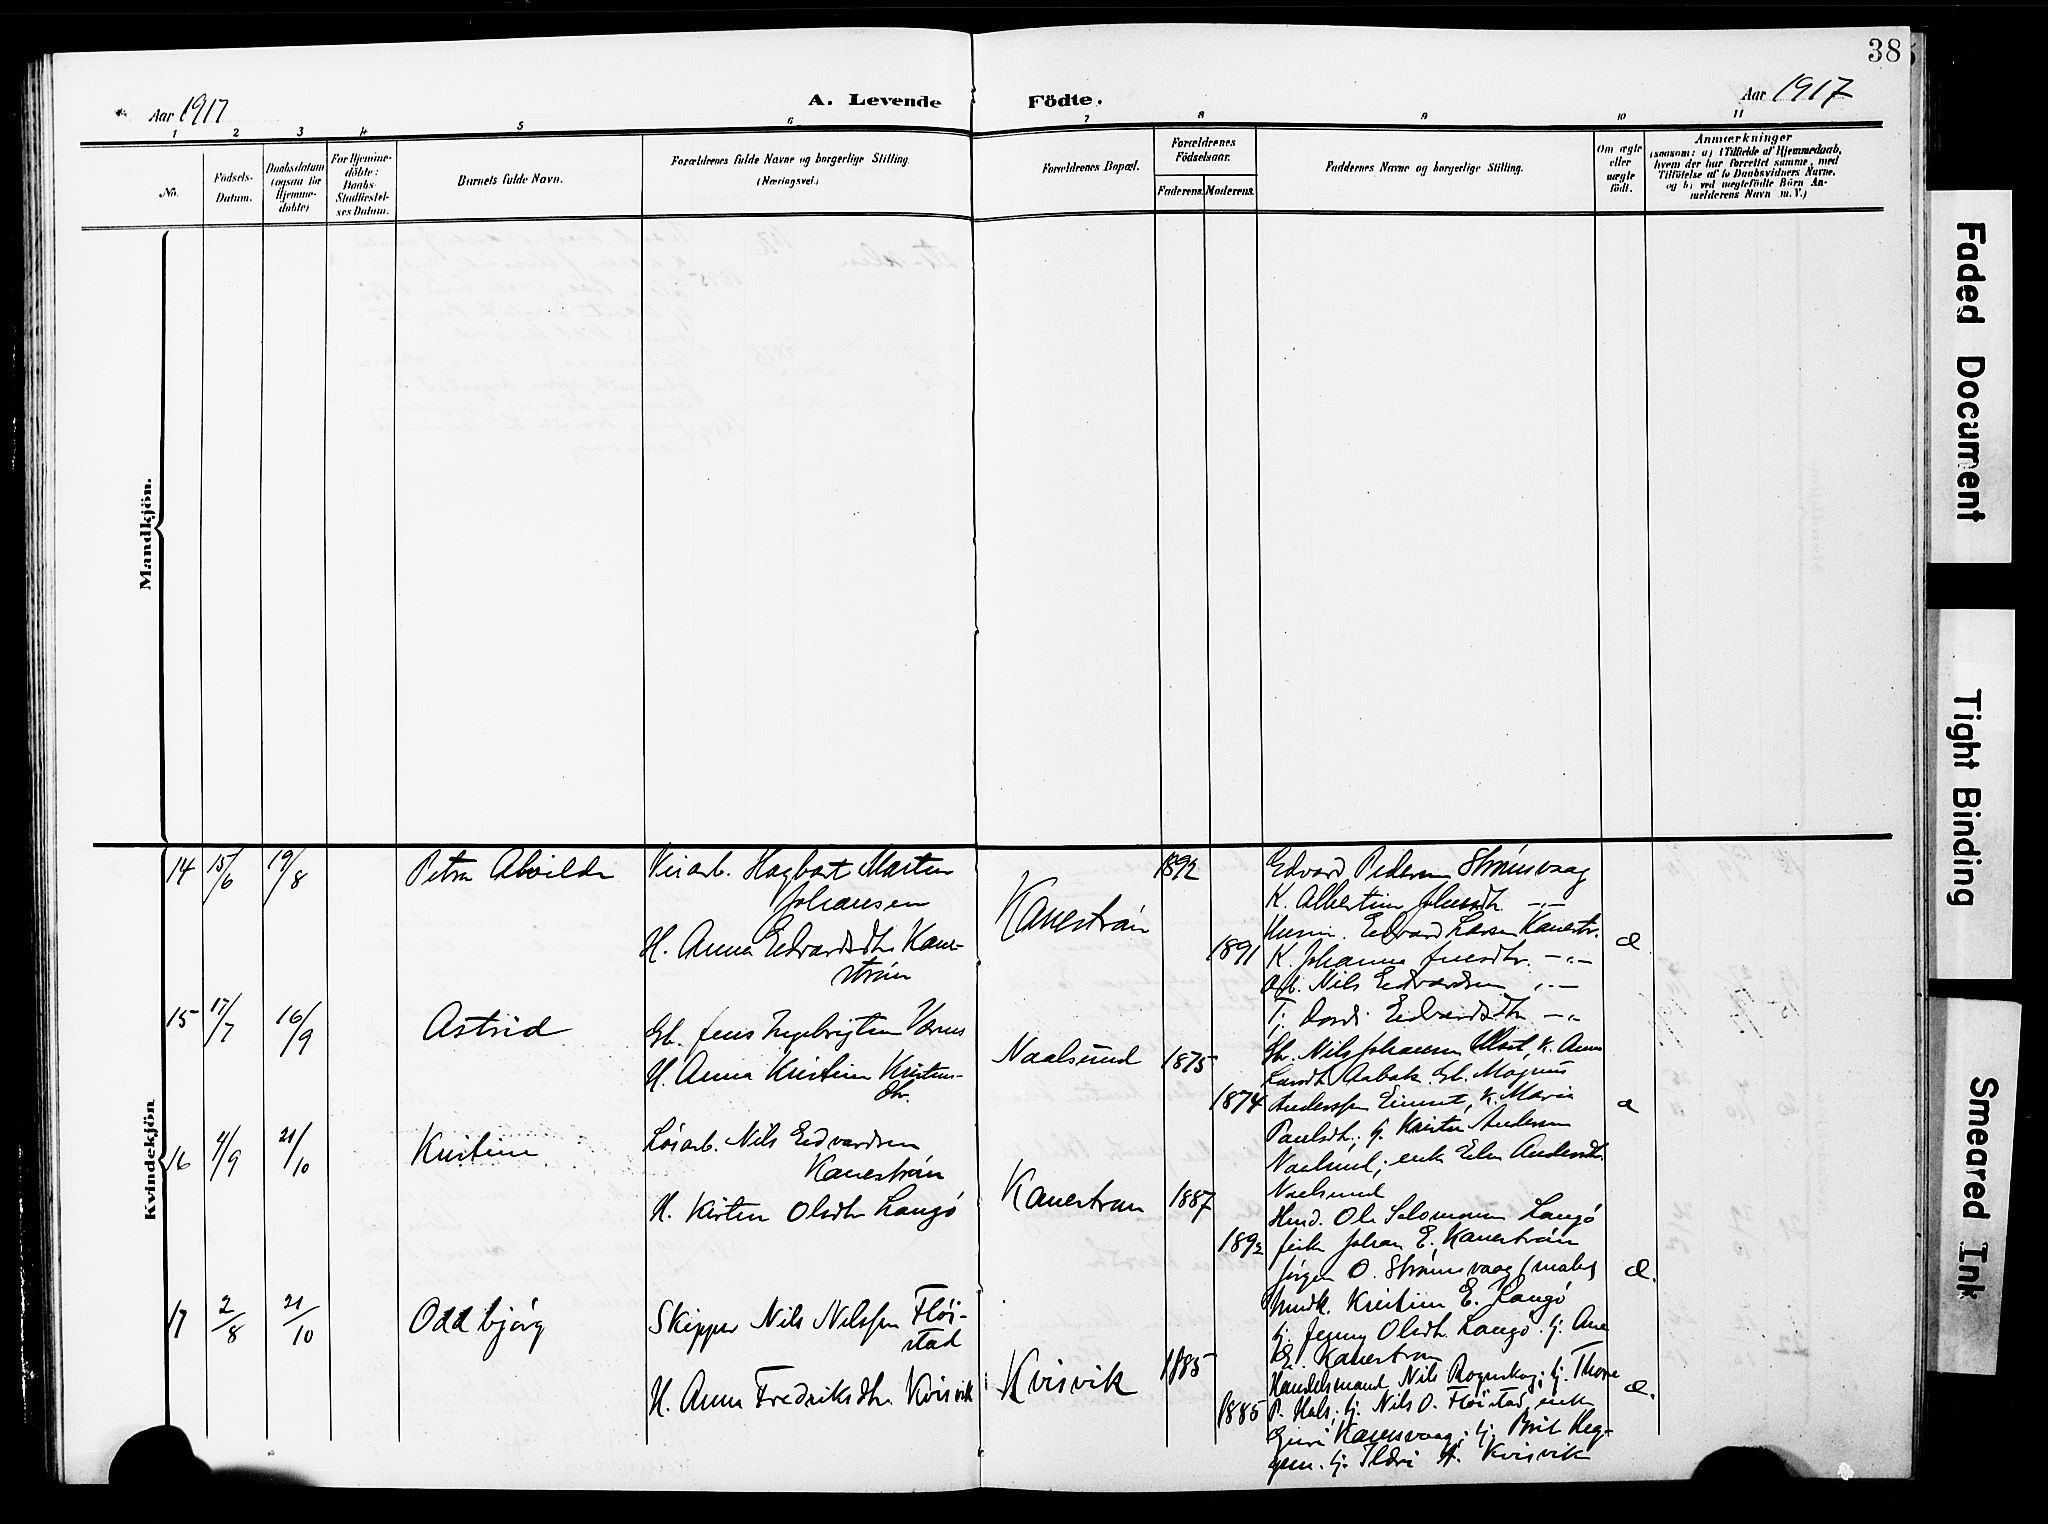 38
Aar 1917
A. Levende Födte.
Aar 1917
1 2 3 4 5 6 7 8 9 10 11
No.
Födsels-
Datum.
Daabsdatum
(ogsaa for
Hjemme-
döbte)
For Hjemme-
döbte:
Daabs-
Stadfæstel-
ses Datum.
Barnets fulde Navn.
Forældrenes fulde Navne og borgerlige Stilling
(Næringsvei.)
Forældrenes Bopæl.
Forældrenes
Födselsaar.
Faderens. Moderens.
Faddernes Navne og borgerlige Stilling.
Om ægte
eller
uægte
født.
Anmærkninger
(saasom: a) i Tilfælde af Hjemmedaab,
hvem der har forrettet samme, med
Tilföielse af to Daabsvidners Navne,
og b) ved uægtefödte Börn An-
melderens Navn m. V.)
Mandkjön.
Kvindekjön
14 15/6 19/8 Petra Alvilde Veiarb. Hagbart Martin
Johansen
H. Anna Edvardsdtr. Kane-
ström
Kaneström
1892
1891
Edvard Pedersen Strömsvaag
K. Albertine Johnsdtr. -"-
Husm. Edvard Larsen Kanestr.
K. Johanna Jensdtr. -"-
Nils Eedvardsen -"-
Edvardsdtr. -"-
æ.
15 17/7 16/9 Astrid Gb. Jens Ingebrigtsen Værnes
H. Anna Kristine Kristens-
dtr.
Naalsund 1875
1874
Nils Johansen K. Anne
Larsdtr. Aabak. Gb. Magnus
Anderssen K. Marie
Paulsdtr; Andersen
Naalsund; enke Andersdtr.
Naalsund
æ
16 4/9 21/10 Kristine Løsarb. Nils Eedvardsen
Kaneström
H. Kirsten Olsdtr. Langö
Kaneström 1887
1892
Ole Salomonsen Langö
Johan E. Kaneström
Jörgen O. Strömsvaag (maler)
Kristine E. Langö
Olsdtr. Langö. Ane
E. Kaneström
æ.
17 2/8 21/10 Oddbjörg Skipper Nils Nilssen Flöi-
stad
H. Anna Fredriksdtr. Kvisvik
Kvisvik 1885
1885
Handelsmand Nils Rognskog; Thore
P. Hals; Nils O. Flöistad, enke
Guri Kanesvaag; Brit Heg-
gem. Ildri A. Kvisvik
æ.
Faded Document
Tight Binding
Smeared Ink